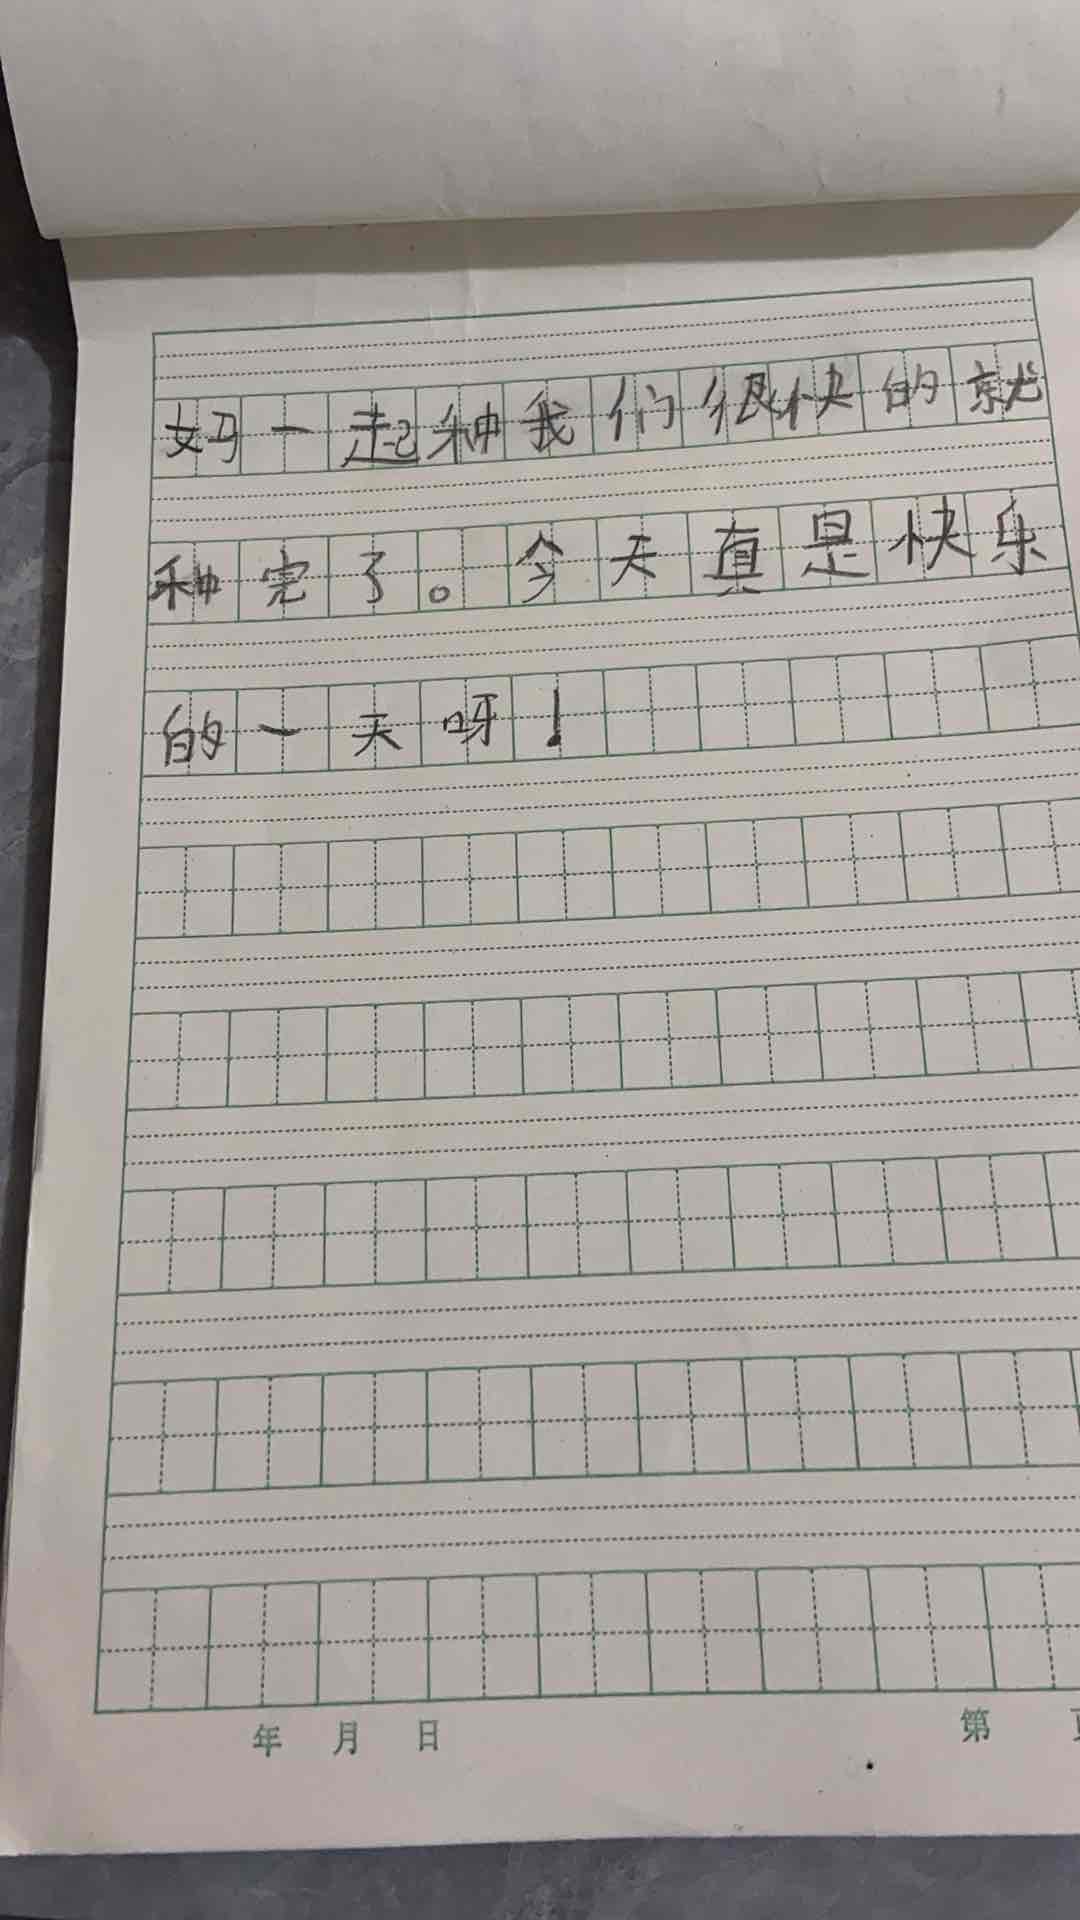 妈一起种我们很快的就
种完了。今天真是快乐
的一天呀!
年 月 日 第